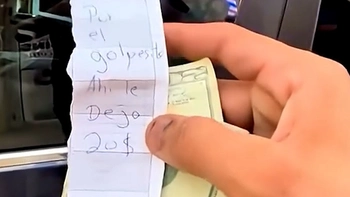 Por
el
golpesito
Ahi le
Dejo
20$